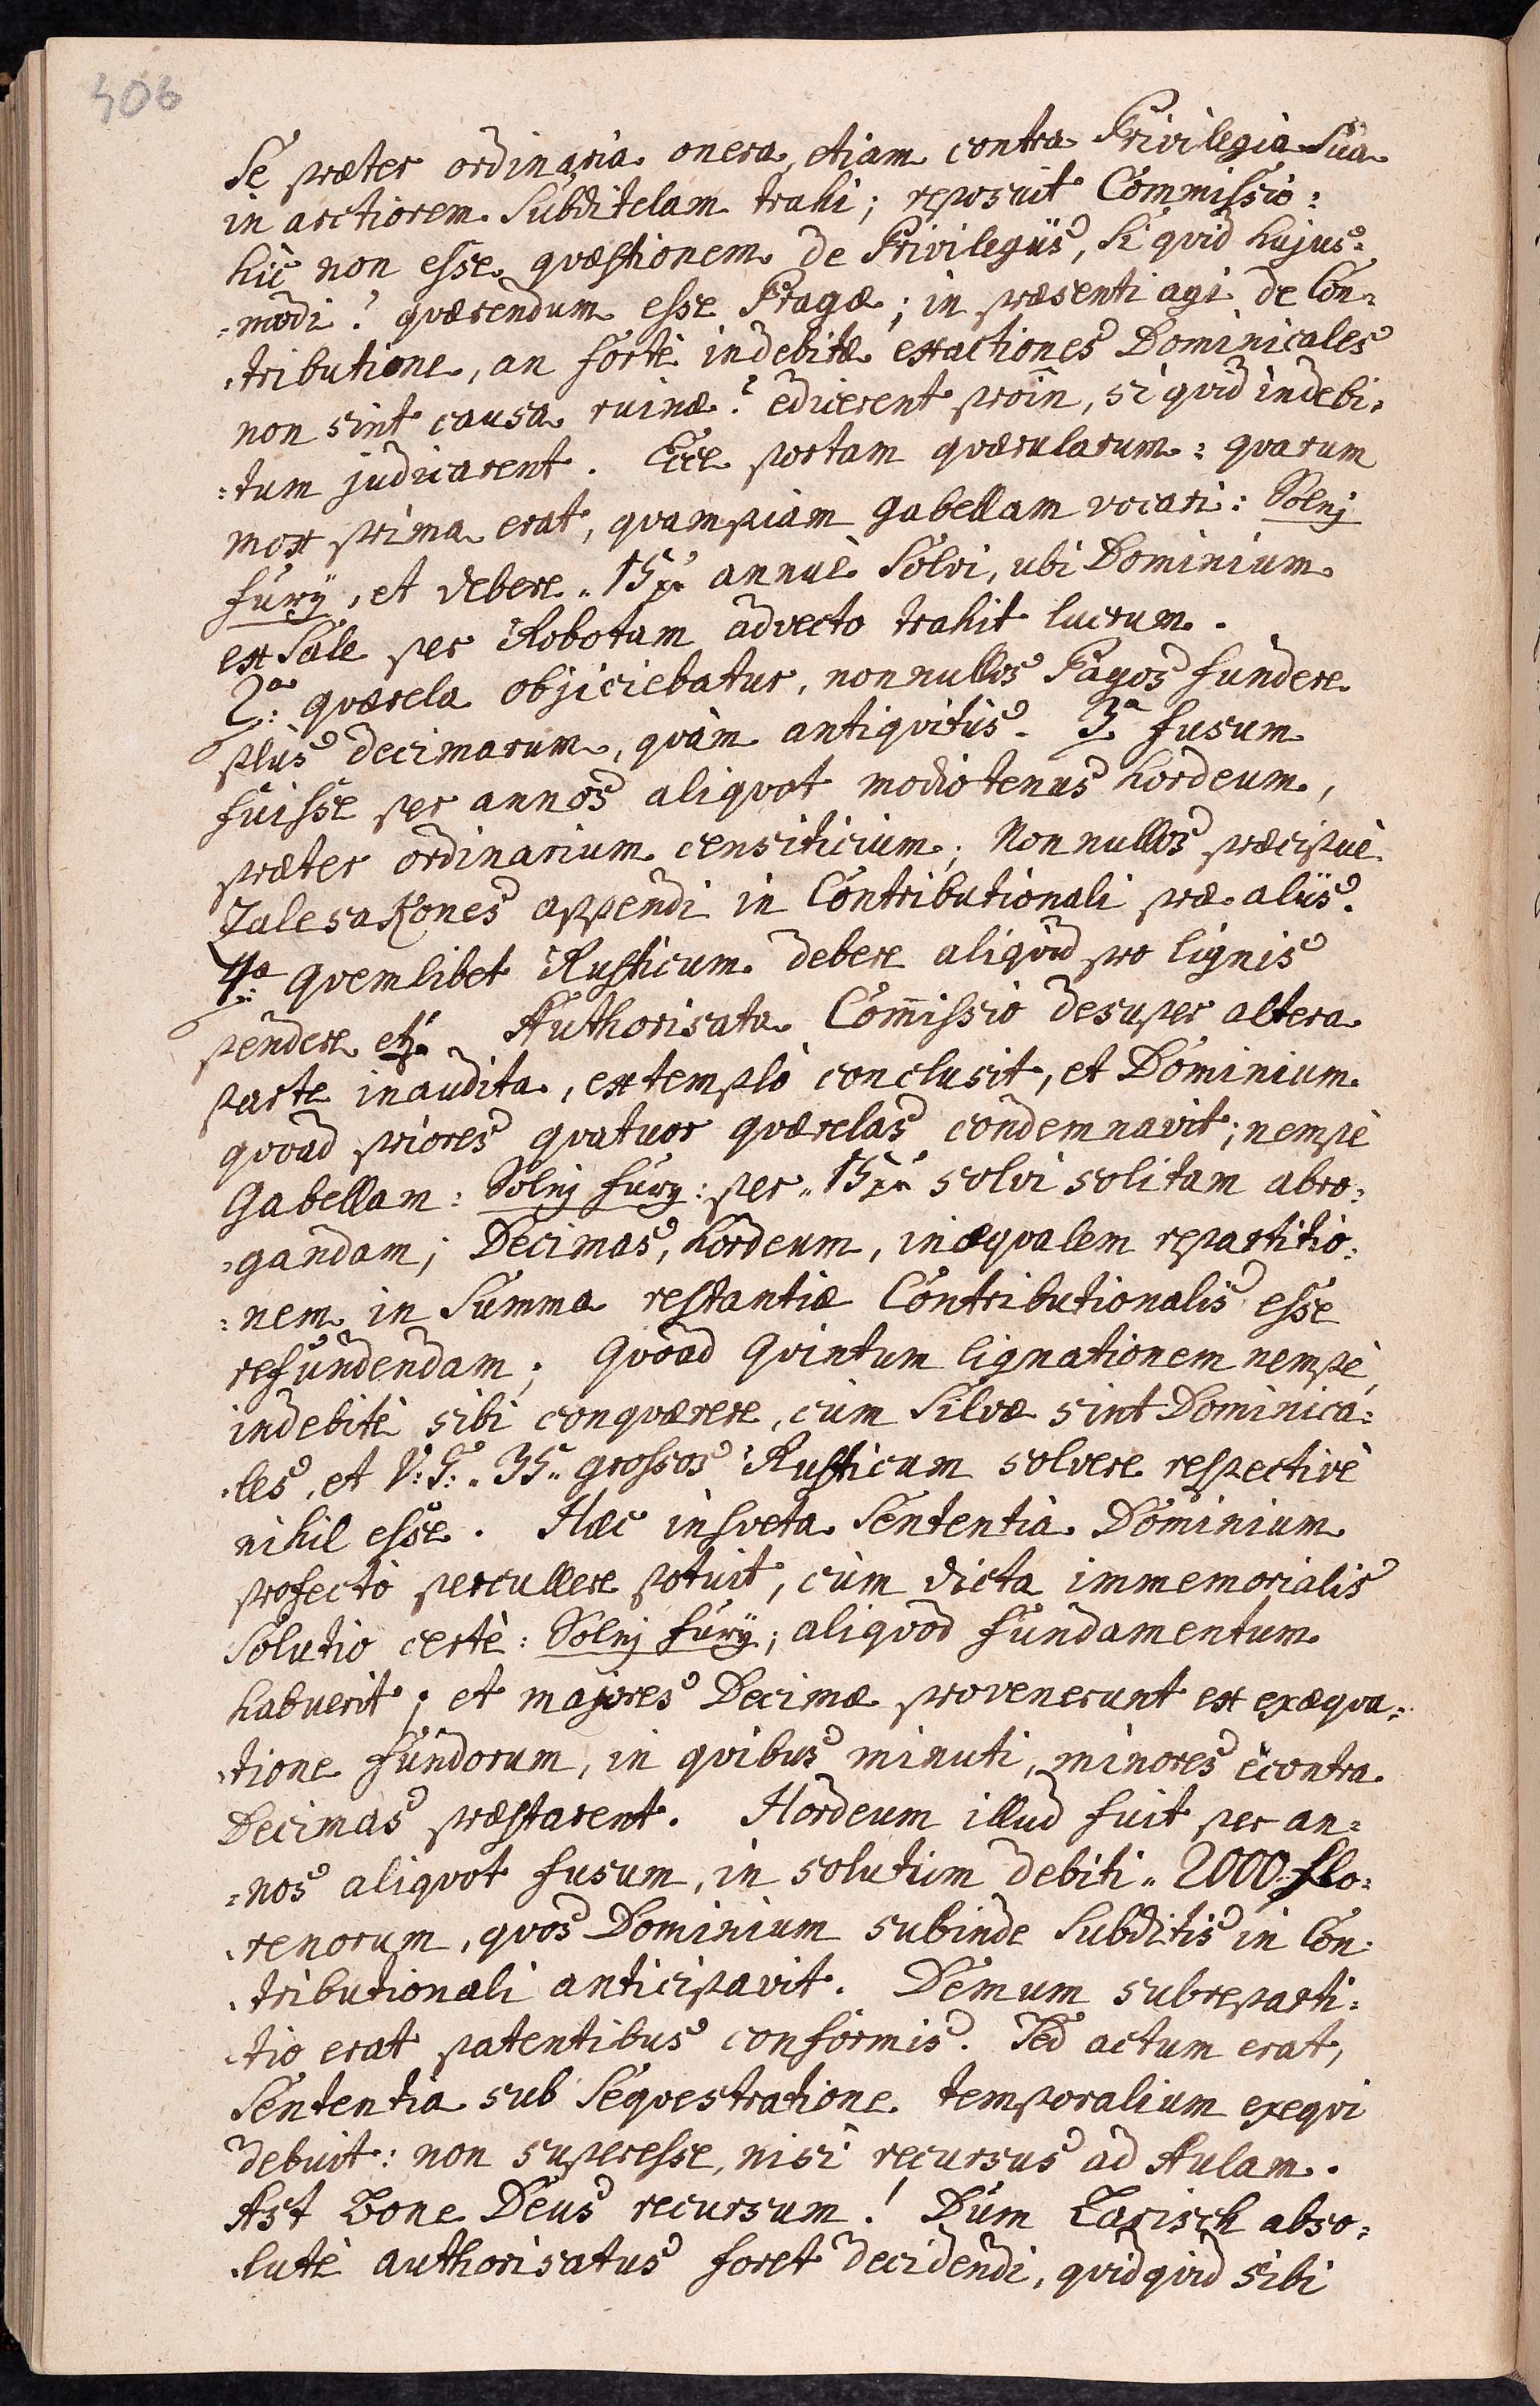 306
Se præter ordinaria onera, etiam contra Privilegia Sua
in arctiorem Subditelam trahi; reposuit Commissio:
hic non esse quæstionem de Privilegiis, si quid hujus-
-modi? quærendum esse Pragæ; in præsenti agi de Con-
-tributione, an fortè indebitæ exactiones Dominicales
non sint causa ruinæ? edicerent proin, si quid indebi-
-tum judicarent. Ecce portam quærularum: quarum
mox prima erat, quampiam gabellam vocari: Solnj
fury, et debere „ 15 xr annuè Solvi, ubi Dominium
ex Sale per Robotam advecto trahit lucrum.
2a: quærela objiciebatur, nonnullos Pagos fundere
plùs decimarum, quàm antiquitùs. 3a fusum
fuisse per annos aliquot modiotenus hordeum,
præter ordinarium censiticium; Nonnullos præcipuè
Zalesakones appendi in Contributionali præ aliis.
4a: quemlibet Rusticum debere aliquid pro lignis
pendere etc. Authorisata Com̄issio desuper altera
parte inaudita, extemplò conclusit, et Dominium
quoad priores quatuor quærelas condemnavit; nempè
Gabellam: Solnj fury: per „ 15 xr solvi solitam abro-
-gandam; Decimas, hordeum, inæqualem repartitio-
-nem in Summa restantiæ Contributionalis esse
refundendam; Quoad Quintum lignationem nempè,
indebitè sibi conquærere, cùm Silvæ sint Dominica-
-les, et V: G: „ 35 „ grossos Rusticum solvere respectivè
nihil esse. Hæc insveta Sententia Dominium
profectò percullere potuit, cùm dicta immemorialis
Solutio certè: Solnj fury; aliquod fundamentum
habuerit; et majores Decimæ provenerunt ex exæqua-
-tione fundorum, in quibus minuti, minores ècontra
Decimas præstarent. Hordeum illud fuit per an-
-nos aliquot fusum, in solutum debiti „ 2000 flo-
-renorum, quos Dominium subinde Subditis in Con-
-tributionali anticipavit. Demum subreparti-
-tio erat patentibus conformis. Sed actum erat,
Sententia sub Sequestratione temporalium exequi
debuit: non superesse, nisi recursus ad Aulam.
Ast bone Deus recursum! Dum Larisch abso-
-lutè authorisatus foret decidendi, quidquid sibi